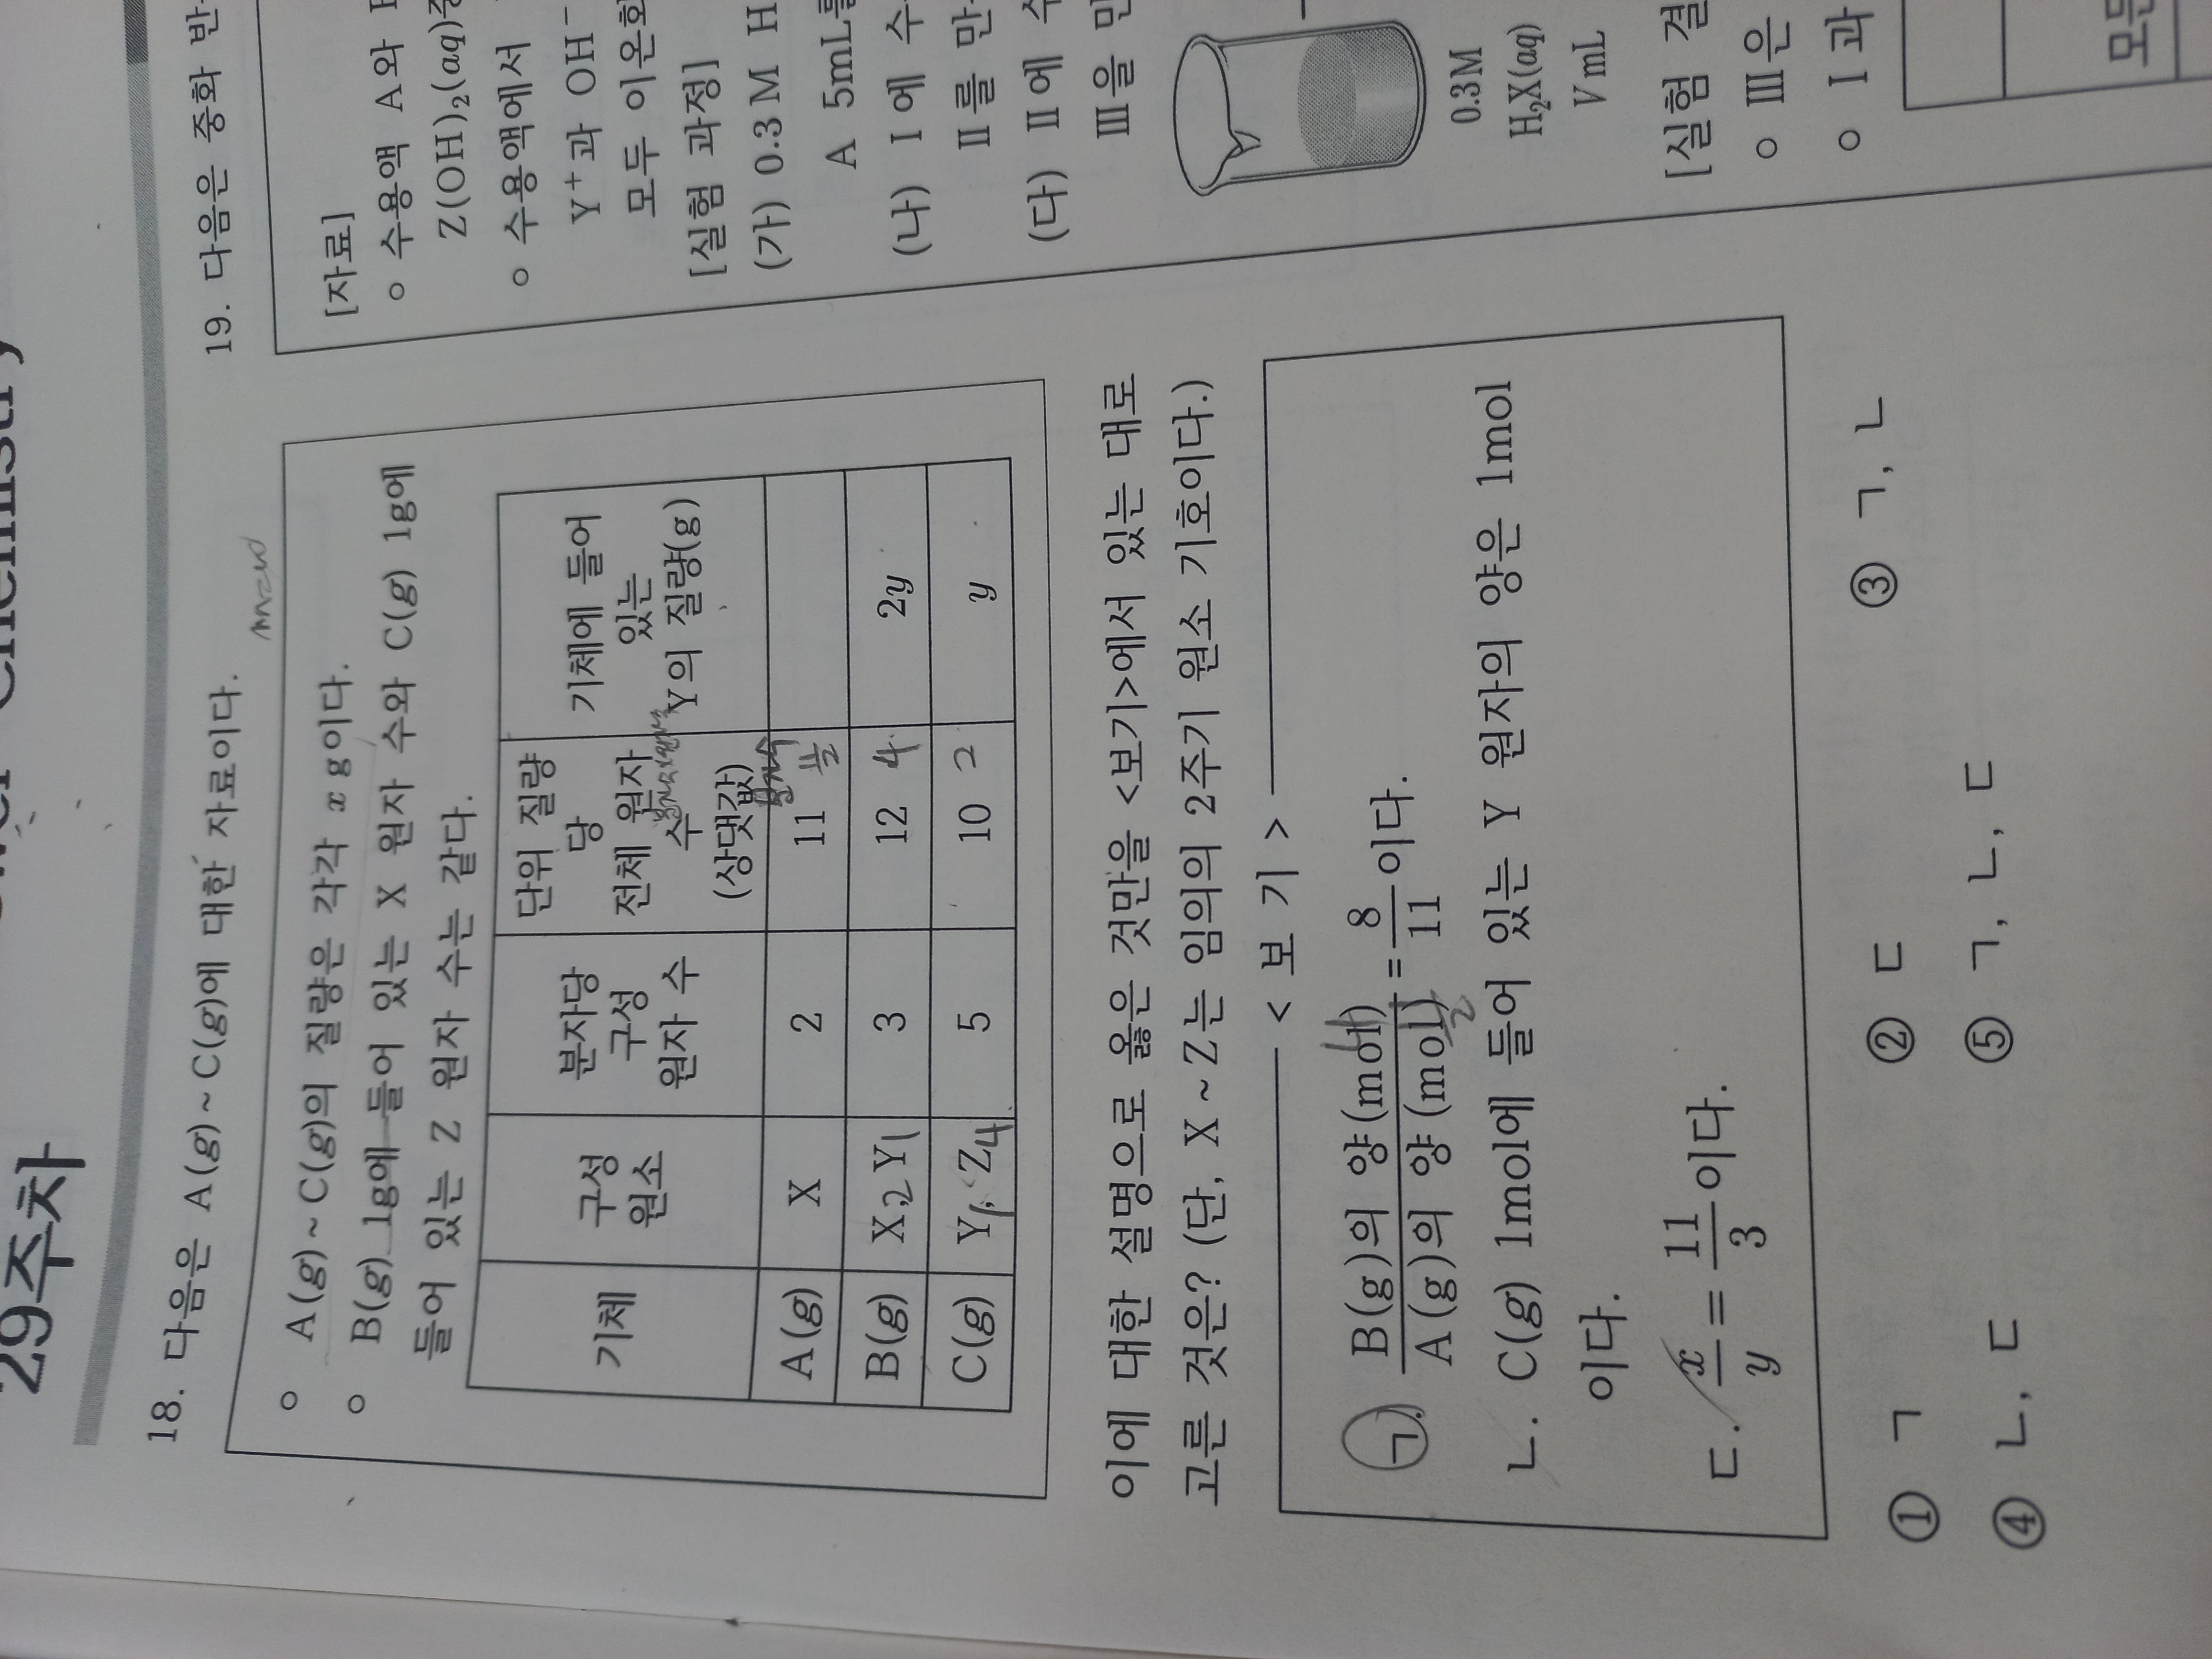 29주차
18. 다음은 A(g) ~ C(g)에 대한 자료이다.
○ A(g) ~ C(g)의 질량은 각각 x g이다.
○ B(g) 1g에 들어 있는 X 원자 수와 C(g) 1g에
들어 있는 Z 원자 수는 같다.
기체 구성 원소 분자당 구성 원자 수 단위 질량당 전체 원자 수 (상댓값) 기체에 들어 있는 Y의 질량(g)
A(g) X 2 11
B(g) X, Y 3 12 2y
C(g) Y, Z 5 10 y
이에 대한 설명으로 옳은 것만을 <보기>에서 있는 대로
고른 것은? (단, X ~ Z는 임의의 2주기 원소 기호이다.)
< 보 기 >
ㄱ. B(g)의 양(mol) / A(g)의 양(mol) = 8/11 이다.
ㄴ. C(g) 1mol에 들어 있는 Y 원자의 양은 1mol
이다.
ㄷ. x/y = 11/3 이다.
① ㄱ ② ㄷ ③ ㄱ, ㄴ
④ ㄴ, ㄷ ⑤ ㄱ, ㄴ, ㄷ
19. 다음은 중화 반
[자료]
○ 수용액 A와
Z(OH)₂(aq)
○ 수용액에서
Y⁺과 OH⁻
모두 이온화
[실험 과정]
(가) 0.3M H
A 5mL를
(나) Ⅰ에 수
Ⅱ를 만
(다) Ⅱ에 수
Ⅲ을 만
0.3M
H₂X(aq)
V mL
[실험 결
○ Ⅲ은
○ Ⅰ과
모든